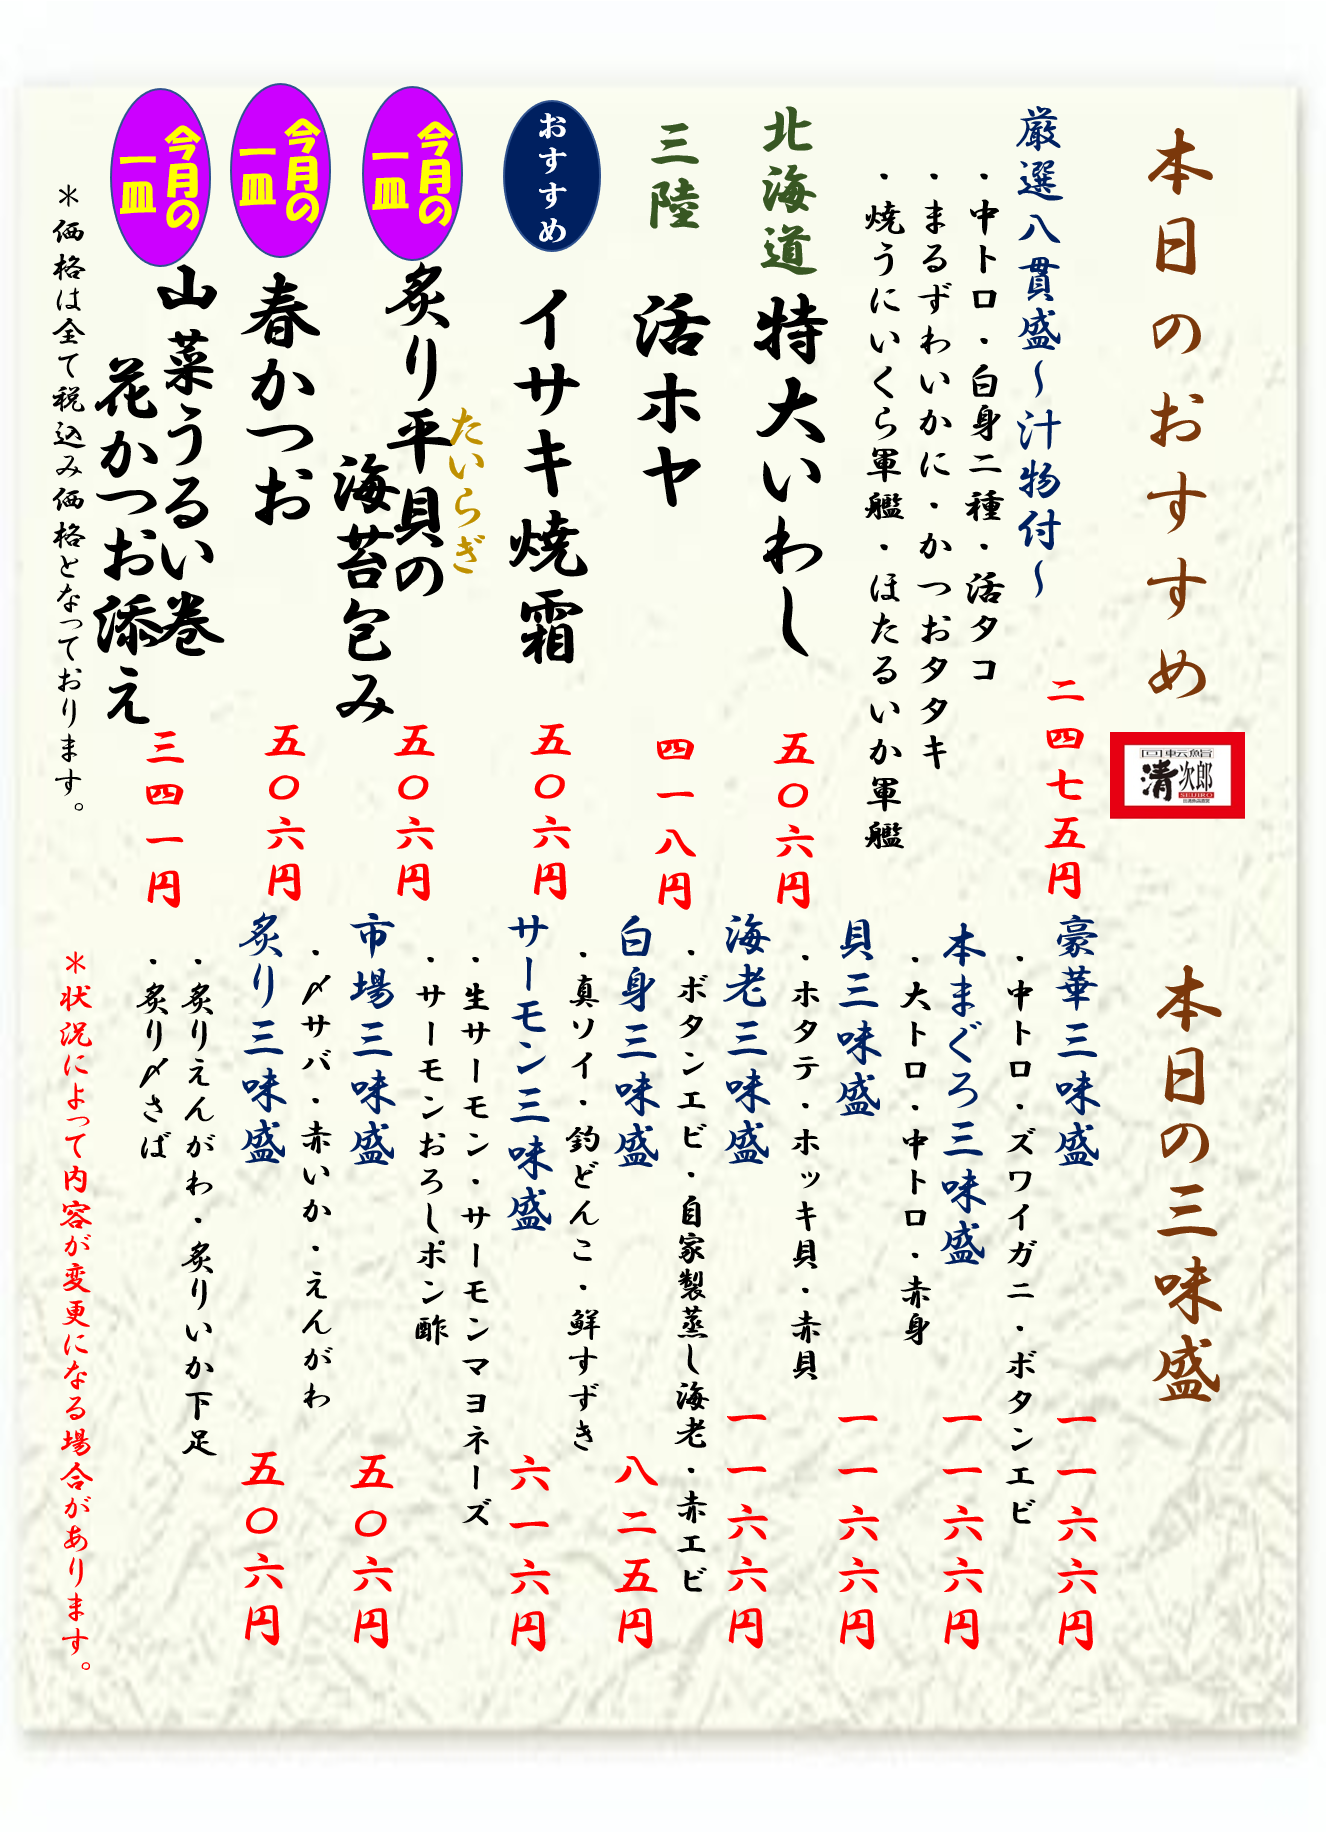 本日のおすすめ
回転鮨
清次郎
SEIJIRO
厳選八貫盛～汁物付～
二四七五円
・中トロ・白身二種・活タコ
・まるずわいかに・かつおタタキ
・焼うにいくら軍艦・ほたるいか軍艦
北海道
特大いわし
五〇六円
三陸
活ホヤ
四一八円
おすすめ
イサキ焼霜
五〇六円
今月の
一皿
たいらぎ
炙り平貝の
海苔包み
五〇六円
今月の
一皿
春かつお
五〇六円
今月の
一皿
山菜うるい巻
花かつお添え
三四一円
＊価格は全て税込み価格となっております。
本日の三味盛
豪華三味盛
一一六六円
・中トロ・ズワイガニ・ボタンエビ
本まぐろ三味盛
一一六六円
・大トロ・中トロ・赤身
貝三味盛
一一六六円
・ホタテ・ホッキ貝・赤貝
海老三味盛
一一六六円
・ボタンエビ・自家製蒸し海老・赤エビ
白身三味盛
八二五円
・真ソイ・釣どんこ・鮮すずき
サーモン三味盛
六一六円
・生サーモン・サーモンマヨネーズ
・サーモンおろしポン酢
市場三味盛
五〇六円
・〆サバ・赤いか・えんがわ
炙り三味盛
五〇六円
・炙りえんがわ・炙りいか下足
・炙り〆さば
＊状況によって内容が変更になる場合があります。